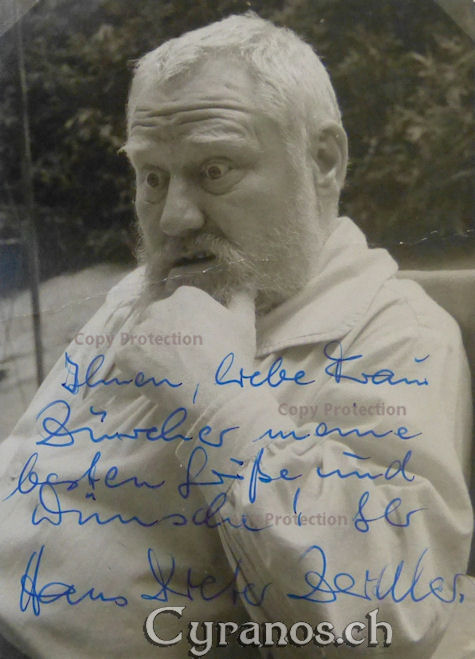 Copy Protection
Ihnen, liebe Frau
Copy Protection
meine
besten Grüße und
Wünsche! Ihr
Protection
Hans Dieter
Cyranos.ch